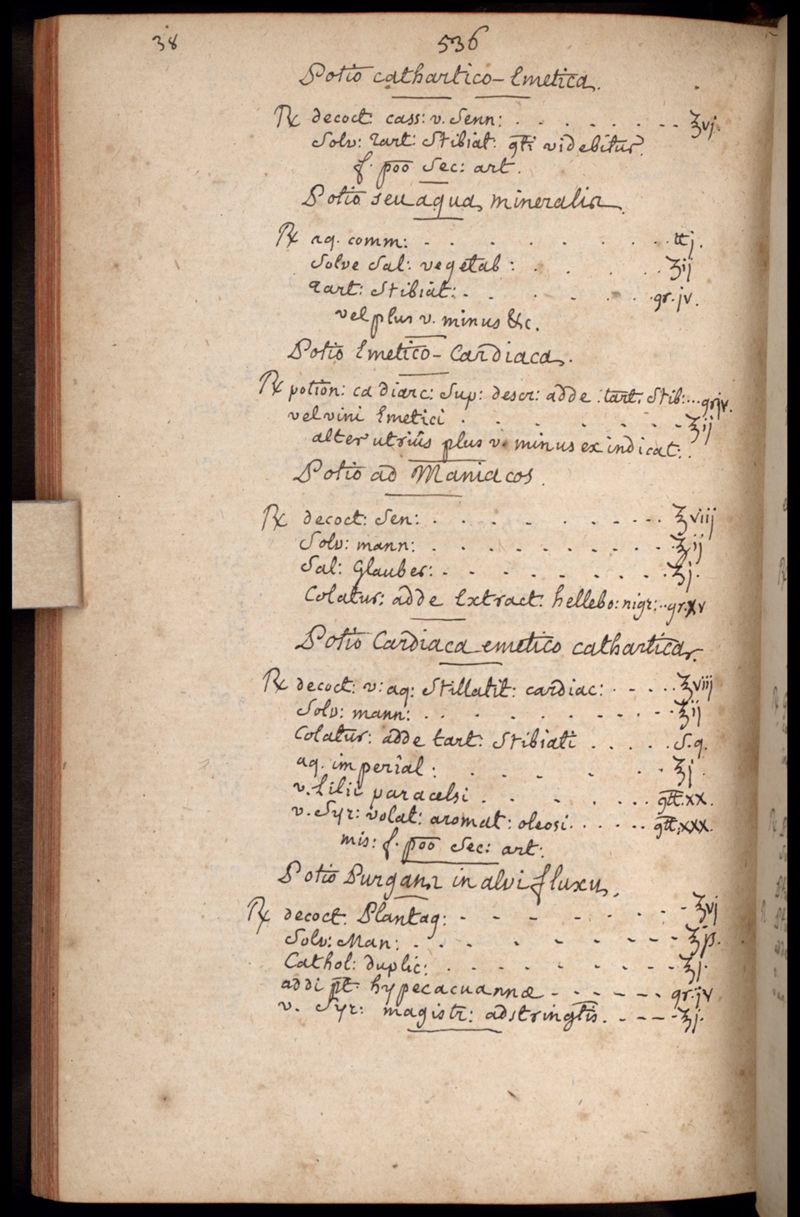 38
536
Potio cathartico-Emetica.
℞ decoct: cass: v. Senn: . . . . . . . - - ℥vj.
Solv: Tart: Stibiat: qt: videbitur.
f. poo Sec: art.
Potio seu aqua mineralis.
℞ aq. comm: - . . . . . . . . ℔j.
Solve Sal: vegetab: . . . . . ʒij
Tart: Stibiat: - . . . . . . gr. jv.
vel plus v. minus &c.
Potio Emetico-Cardiaca.
℞ potion: cadiarc: Sup: descr: adde tart: Stib: ... gr jv.
vel vini Emetici . . . . . . - ℥ij
alterutrius plus v. minus ex indicat:.
Potio ad Maniacos.
℞ decoct: Sen: . . . . . - . - . . . ℥viij
Solv: mann: . . . . . . . . . - ℥ij
Sal: Glauber: - . . - . . . . . . ʒj.
Colatur: adde Extract: hellebo: nigr: .. gr. xv
Potio Cardiaca emetico cathartica.
℞ decoct: v: aq: Stillatit: cardiac: . - . . . ℥viij
Solv: mann: . . . . . . . - - . - ℥ij
Colatur: adde tart: Stibiati . . . . . S. q.
aq. imperial: . . . . . . - ℥j.
v. Lilii paracelsi . . . . . . . . gtt. xx.
v. Syr: volat: aromat: oleosi . . . . . . gtt: xxx.
mis: f. poo Sec: art:
Potio Purgans in alvi fluxu.
℞ decoct: Plantag: - - - - - . . . - ℥vj
Solv: Man: . . - . - . . - - - ℥jß.
Cathol: duplic: . . . . - . . - - ℥j.
addi pt. hypecacuannæ - - - - - . gr. jv
v. Syr: magistr: adstringtis. - - - - ℥j.